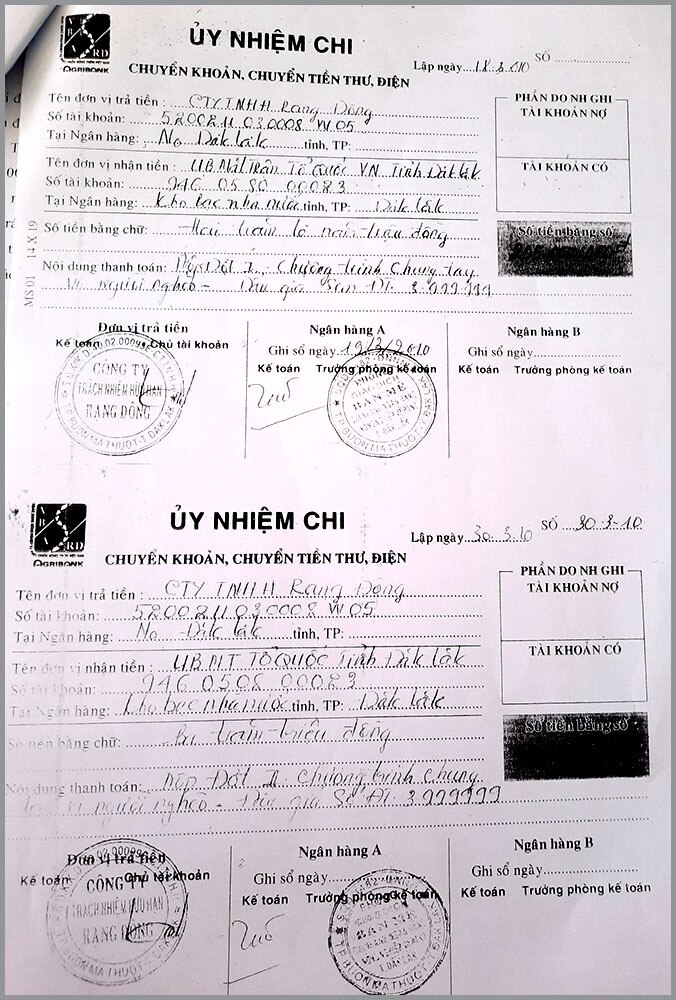 AGRIBANK
ỦY NHIỆM CHI
SỐ
CHUYỂN KHOẢN, CHUYỂN TIỀN THƯ, ĐIỆN
Lập ngày 18.3.010
Tên đơn vị trả tiền: CTY TNHH Rạng Đông
Số tài khoản: 5200211030008 W05
Tại Ngân hàng: No Đăk lăk tỉnh, TP:
Tên đơn vị nhận tiền: UB Mặt Trận Tổ Quốc VN Tỉnh Đăklăk
Số tài khoản: 946 05 80 00083
Tại Ngân hàng: Kho bạc nhà nước tỉnh, TP: Đăk lăk
Số tiền bằng chữ: Hai trăm triệu đồng
Nội dung thanh toán: Nộp Đợt I. Chương trình Chung tay
Vì người nghèo - Đấu giá Sim ĐT. 3999999
PHẦN DO NH GHI
TÀI KHOẢN NỢ
TÀI KHOẢN CÓ
Số tiền bằng số
MS 01 14 X 19
Đơn vị trả tiền
Kế toán Chủ tài khoản
Ngân hàng A
Ghi sổ ngày 19/3/2010
Kế toán Trưởng phòng kế toán
Ngân hàng B
Kế toán Trưởng phòng kế toán
CÔNG TY
TRÁCH NHIỆM HỮU HẠN
RẠNG ĐÔNG
TP BUÔN MA THUỘT-T ĐĂK LĂK
BAN MÊ
AGRIBANK
ỦY NHIỆM CHI
SỐ 30-3-10
CHUYỂN KHOẢN, CHUYỂN TIỀN THƯ, ĐIỆN
Lập ngày 30.3.10
Tên đơn vị trả tiền: CTY TNHH Rạng Đông
Số tài khoản: 5200211030008 W05
Tại Ngân hàng: No Đăk lăk tỉnh, TP:
Tên đơn vị nhận tiền: UBMT Tổ Quốc Tỉnh Đăk lăk
Số tài khoản: 946 0508 00083
Tại Ngân hàng: Kho bạc nhà nước tỉnh, TP: Đăk lăk
Số tiền bằng chữ: trăm triệu đồng
Nội dung thanh toán: Nộp Đợt II. Chương trình Chung
tay vì người nghèo - Đấu giá Số ĐT 3999999
PHẦN DO NH GHI
TÀI KHOẢN NỢ
TÀI KHOẢN CÓ
Số tiền bằng số
Đơn vị trả tiền
Kế toán Chủ tài khoản
Ngân hàng A
Ghi sổ ngày
Kế toán Trưởng phòng kế toán
Ngân hàng B
Ghi sổ ngày
Kế toán Trưởng phòng kế toán
CÔNG TY
TRÁCH NHIỆM HỮU HẠN
RẠNG ĐÔNG
TP BUÔN MA THUỘT-T ĐĂK LĂK
BAN MÊ